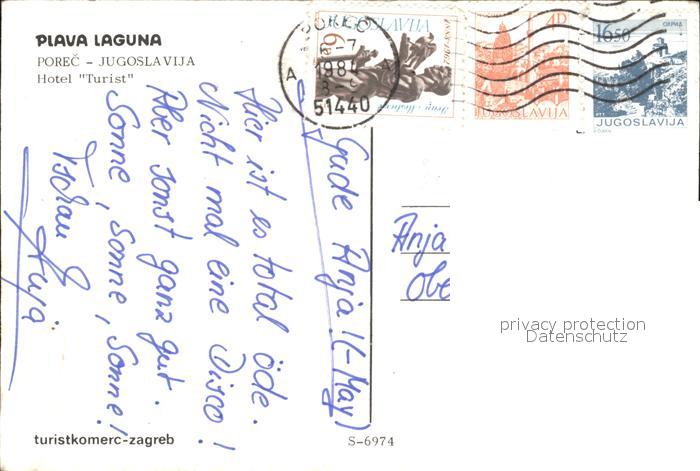 PLAVA LAGUNA
POREČ – JUGOSLAVIJA
Hotel "Turist"
JUGOSLAVIJA
JUGOSLAVIJA
16.50
JUGOSLAVIJA
51440
Gude Anja! (-May)
Hier ist es total öde.
Nicht mal eine Disco!
Aber sonst ganz gut.
Sonne, Sonne, Sonne!
Tschau
Anja
Obe
privacy protection
Datenschutz
turistkomerc-zagreb
S-6974